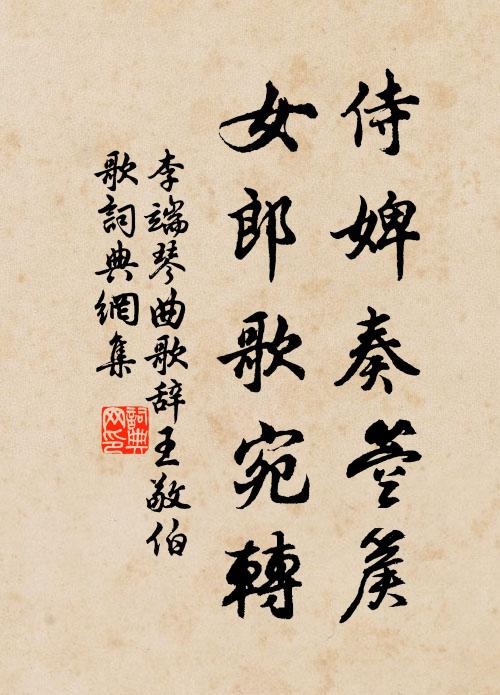 侍婢奏箜篌
女郎歌宛轉
李端琴曲歌辞王敬伯
歌詞典網集
詞典
网印